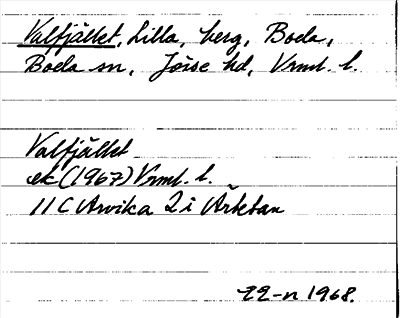 Valfjället, Lilla, berg, Boda,
Boda sn, Jösse hd, Vrml. l.
Valfjället
ek (1967) Vrml. l.
11 C Arvika 2 i Årbetan
1968.